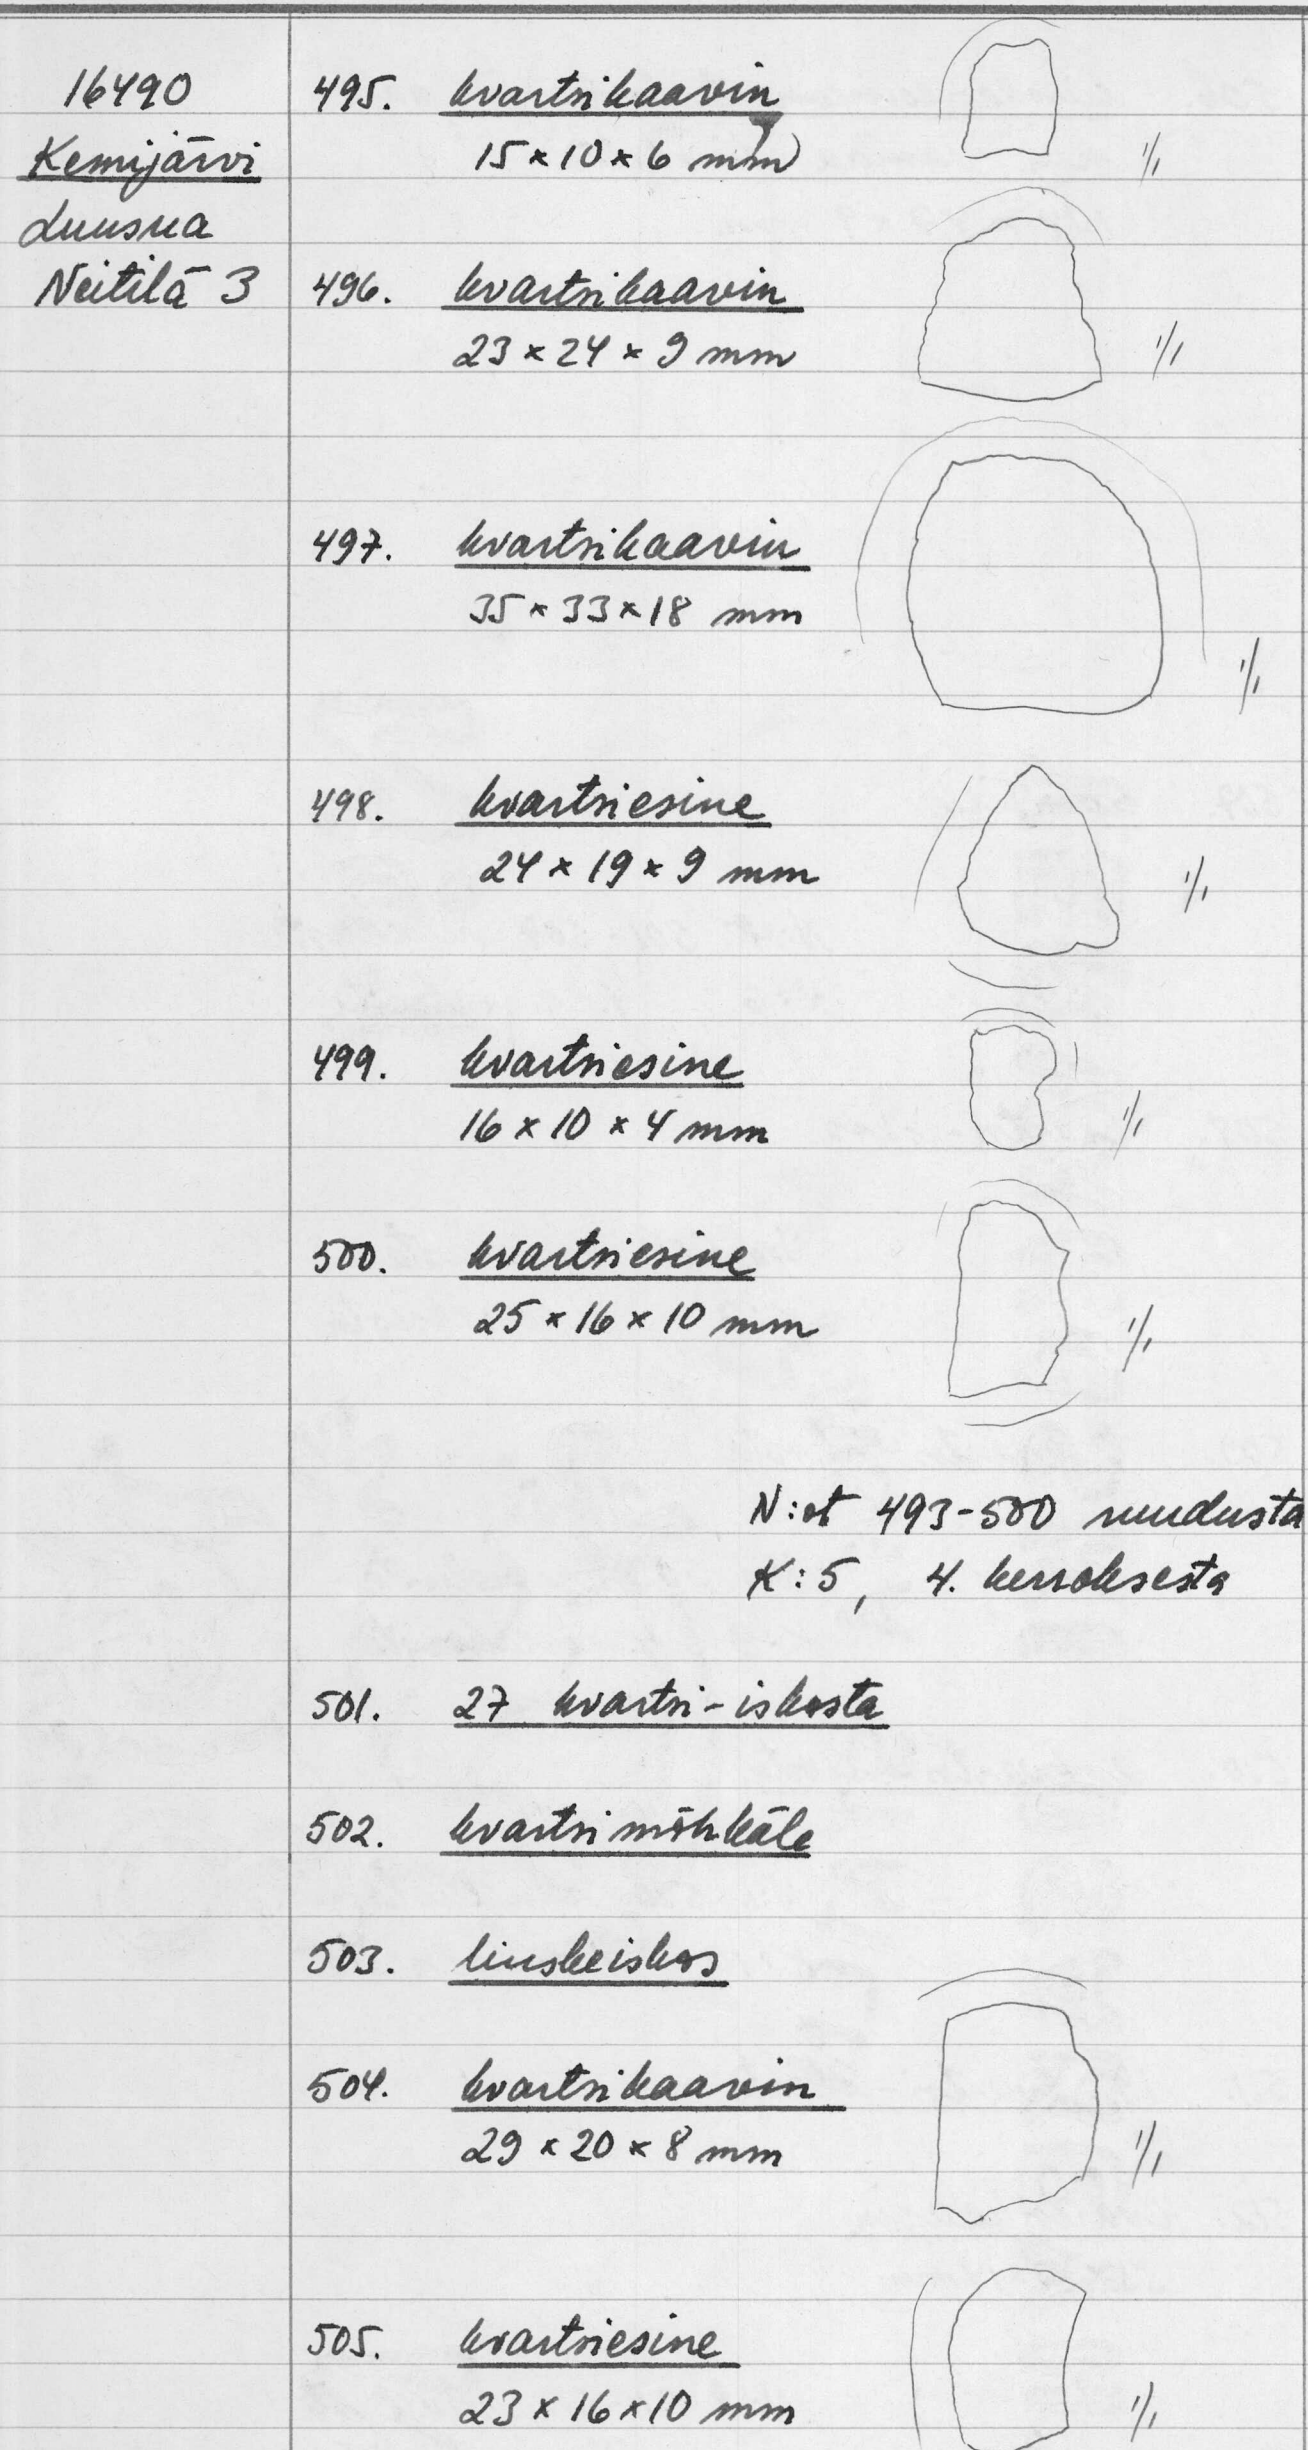 16490
Kemijärvi
Luusua
Neitilä 3
495. kvartsikaavin
15 x 10 x 6 mm
1/1
496. kvartsikaavin
23 x 24 x 9 mm
1/1
497. kvartsikaavin
35 x 33 x 18 mm
1/1
498. kvartsiesine
24 x 19 x 9 mm
1/1
499. kvartsiesine
16 x 10 x 4 mm
1/1
500. kvartsiesine
25 x 16 x 10 mm
1/1
N:ot 493-500 ruudusta
K:5, 4. kerroksesta
501. 27 kvartsi-iskosta
502. kvartsimöhkäle
503. liuskeiskos
504. kvartsikaavin
29 x 20 x 8 mm
1/1
505. kvartsiesine
23 x 16 x 10 mm
1/1